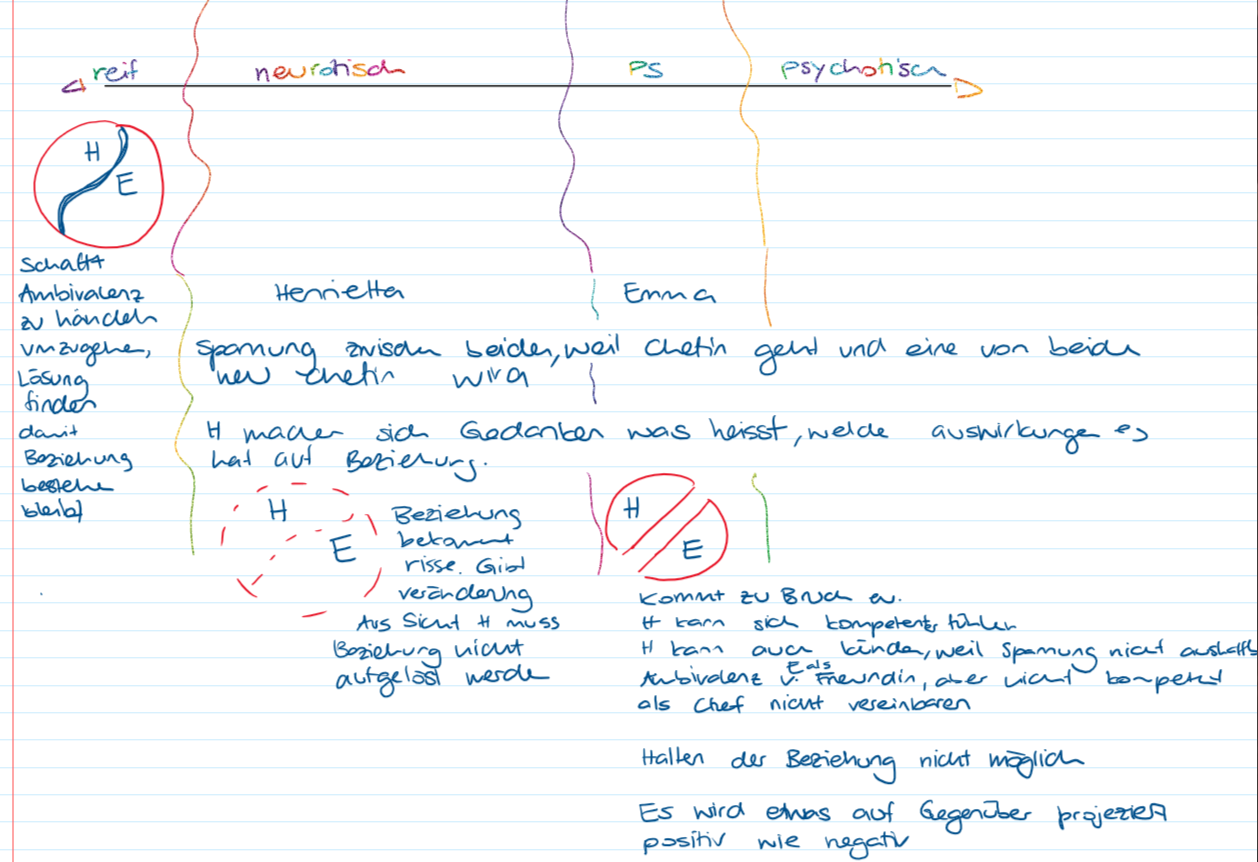 reif neurotisch PS psychotisch
H
E
Schafft
Ambivalenz
zu händeln
umzugehen,
Lösung
finden
damit
Beziehung
bestehe
bleibt
Henrietta Emma
Spannung zwischen beiden, weil Chefin geht und eine von beide
neu Chefin wird
H machen sich Gedanken was heisst, welche auswirkungen es
hat auf Beziehung.
H
E
Beziehung
bekommt
risse. Gibt
veränderung
Aus Sicht H muss
Beziehung nicht
aufgelöst werde
H
E
Kommt zu Bruch ev.
H kann sich kompetenter fühlen
H kann auch künden, weil Spannung nicht aushält
Ambivalenz v. E als Freundin, aber nicht kompetent
als Chef nicht vereinbaren
Halten der Beziehung nicht möglich
Es wird etwas auf Gegenüber projeziert
positiv wie negativ